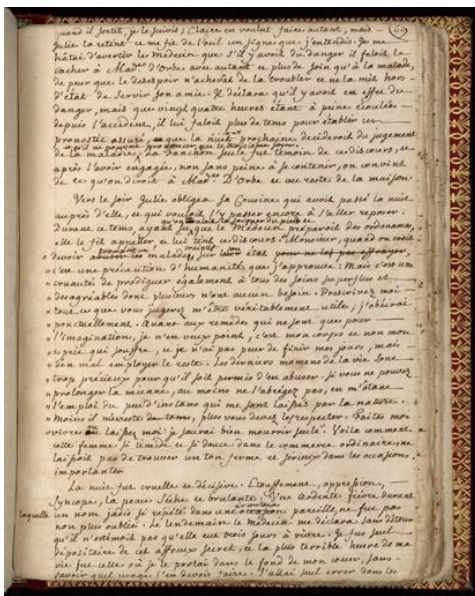 quand il sortit, je le suivis; Claire en voulut faire autant, mais
Julie la retint et me fit de l'œil un signe que j'entendis. Je me
hâtai d'avertir le Medecin que s'il y avoit du danger il faloit le
cacher à Mad.e d'Orbe avec autant et plus de soin qu'à la malade,
de peur que le desespoir n'achevat de la troubler et ne la mit hors
d'état de servir son amie. Il déclara qu'il y avoit en effet du
danger, mais que vingt quatre heures étant à peine écoulées
depuis l'accident, il lui faloit plus de tems pour établir un
pronostic assuré, que la nuit prochaine décideroit du jugement
de la maladie, et qu'il ne pouvoit prononcer que le troisieme jour.
La Fanchon seule fut témoin de ce discours, et
après l'avoir engagée, non sans peine à se contenir, on convint
de ce qu'on diroit à Mad.e D'Orbe et au reste de la maison.
Vers le soir Julie obligea sa Cousine qui avoit passé la nuit
auprès d'elle, et qui vouloit l'y passer encore à s'aller reposer.
durant ce tems, ayant su qu'on alloit la saigner du pied et
que le Medecin préparoit des ordonances,
elle le fit appeller, et lui tint ce discours. "Monsieur, quand on croit
" devoir tromper un malade sur son état
" c'est une précaution d'humanité que j'approuve: Mais c'est une
" cruauté de prodiguer également à tous des soins superflus et
" desagréables dont plusieurs n'ont aucun besoin. Prescrivez moi
" tout ce que vous jugerez m'être véritablement utile; j'obéirai
" ponctuellement. Quant aux remédes qui ne sont que pour
" l'imagination, je n'en veux point, c'est mon corps et non mon
" esprit qui souffre, et je n'ai pas peur de finir mes jours, mais
" d'en mal employer le reste. Les derniers momens de la vie sont
" trop précieux pour qu'il soit permis d'en abuser. Si vous ne pouvez
" prolonger la mienne, au moins ne l'abregez pas, en m'ôtant
" l'emploi du peu d'instans qui me sont laissés par la nature.
" Moins il me reste, plus vous devez les respecter. Faites moi
vivre ou laissez moi: je saurai bien mourir seule". Voila comment
cette femme si timide et si douce dans le commerce ordinaire, ne
laissoit pas de trouver un ton ferme et serieux dans les occasions
importantes.
La nuit fut cruelle et décisive. Etouffement, oppression,
Syncope, la peau séche et brulante. Une ardente fiévre, durant
laquelle un nom jadis si répété dans une occasion pareille, ne fut pas
non plus oublié. Le lendemain le Medecin me déclara sans détour
qu'il n'estimoit pas qu'elle eut trois jours à vivre. Je fus seul
dépositaire de cet affreux secret, et la plus terrible heure de ma
vie fut celle où je le portai dans le fond de mon cœur, sans
savoir quel usage j'en devois faire. J'allai seul errer dans les